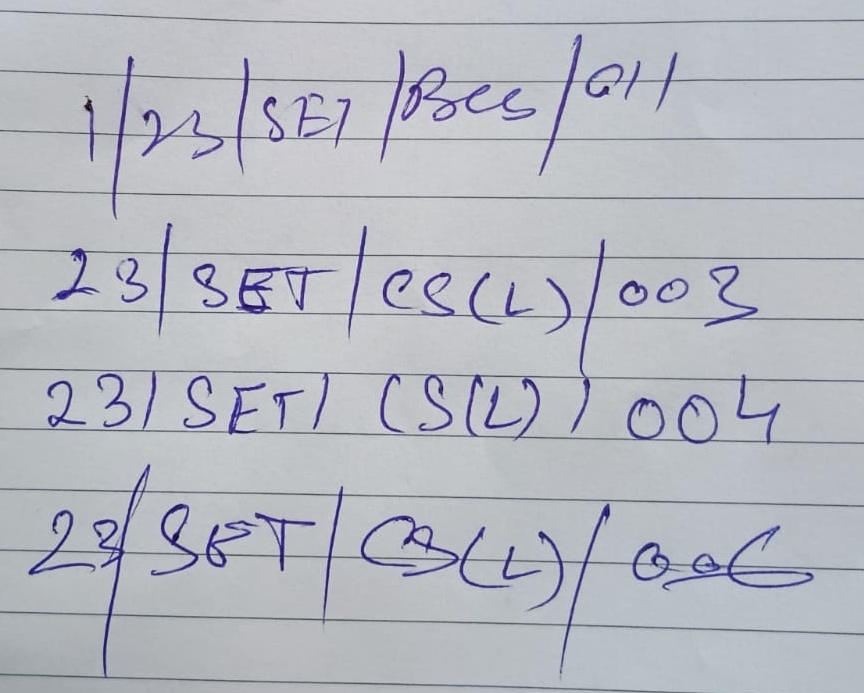 1/23/SET/BCS/011
23/SET/CS(L)/003
23/SET/CS(L)/004
23/SET/CS(L)/006